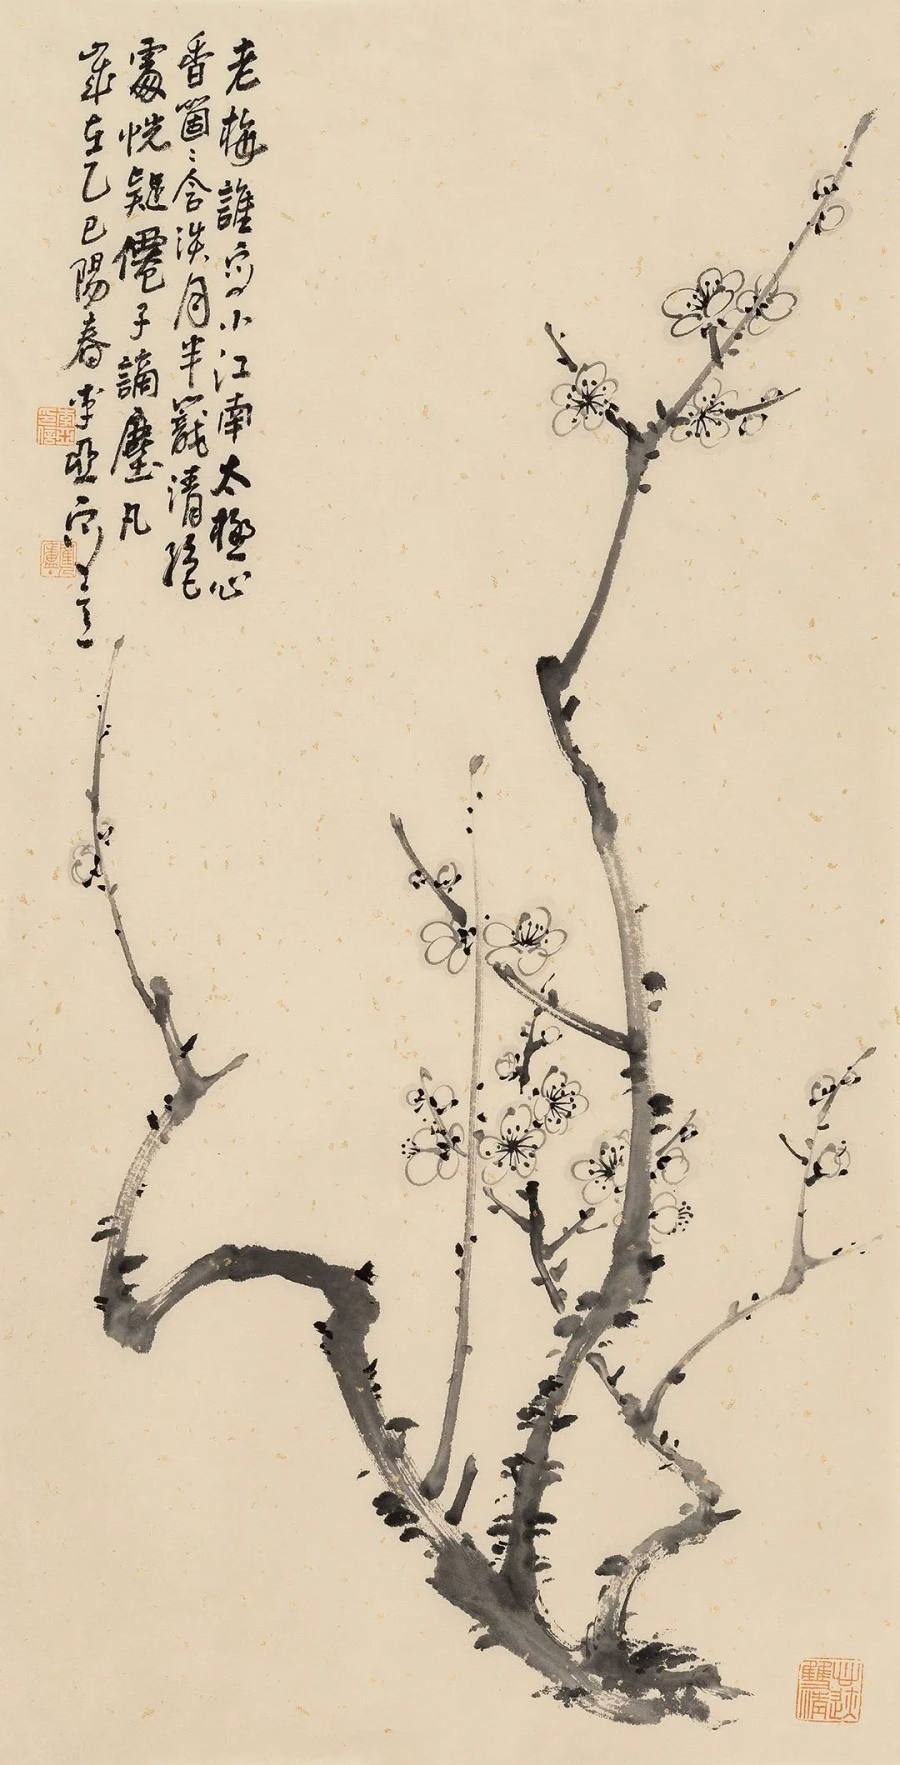 老梅誰寫小江南太極心
香箇箇含淡月半籠清絕
處恍疑僊子謫塵凡
歲在乙巳陽春李亞